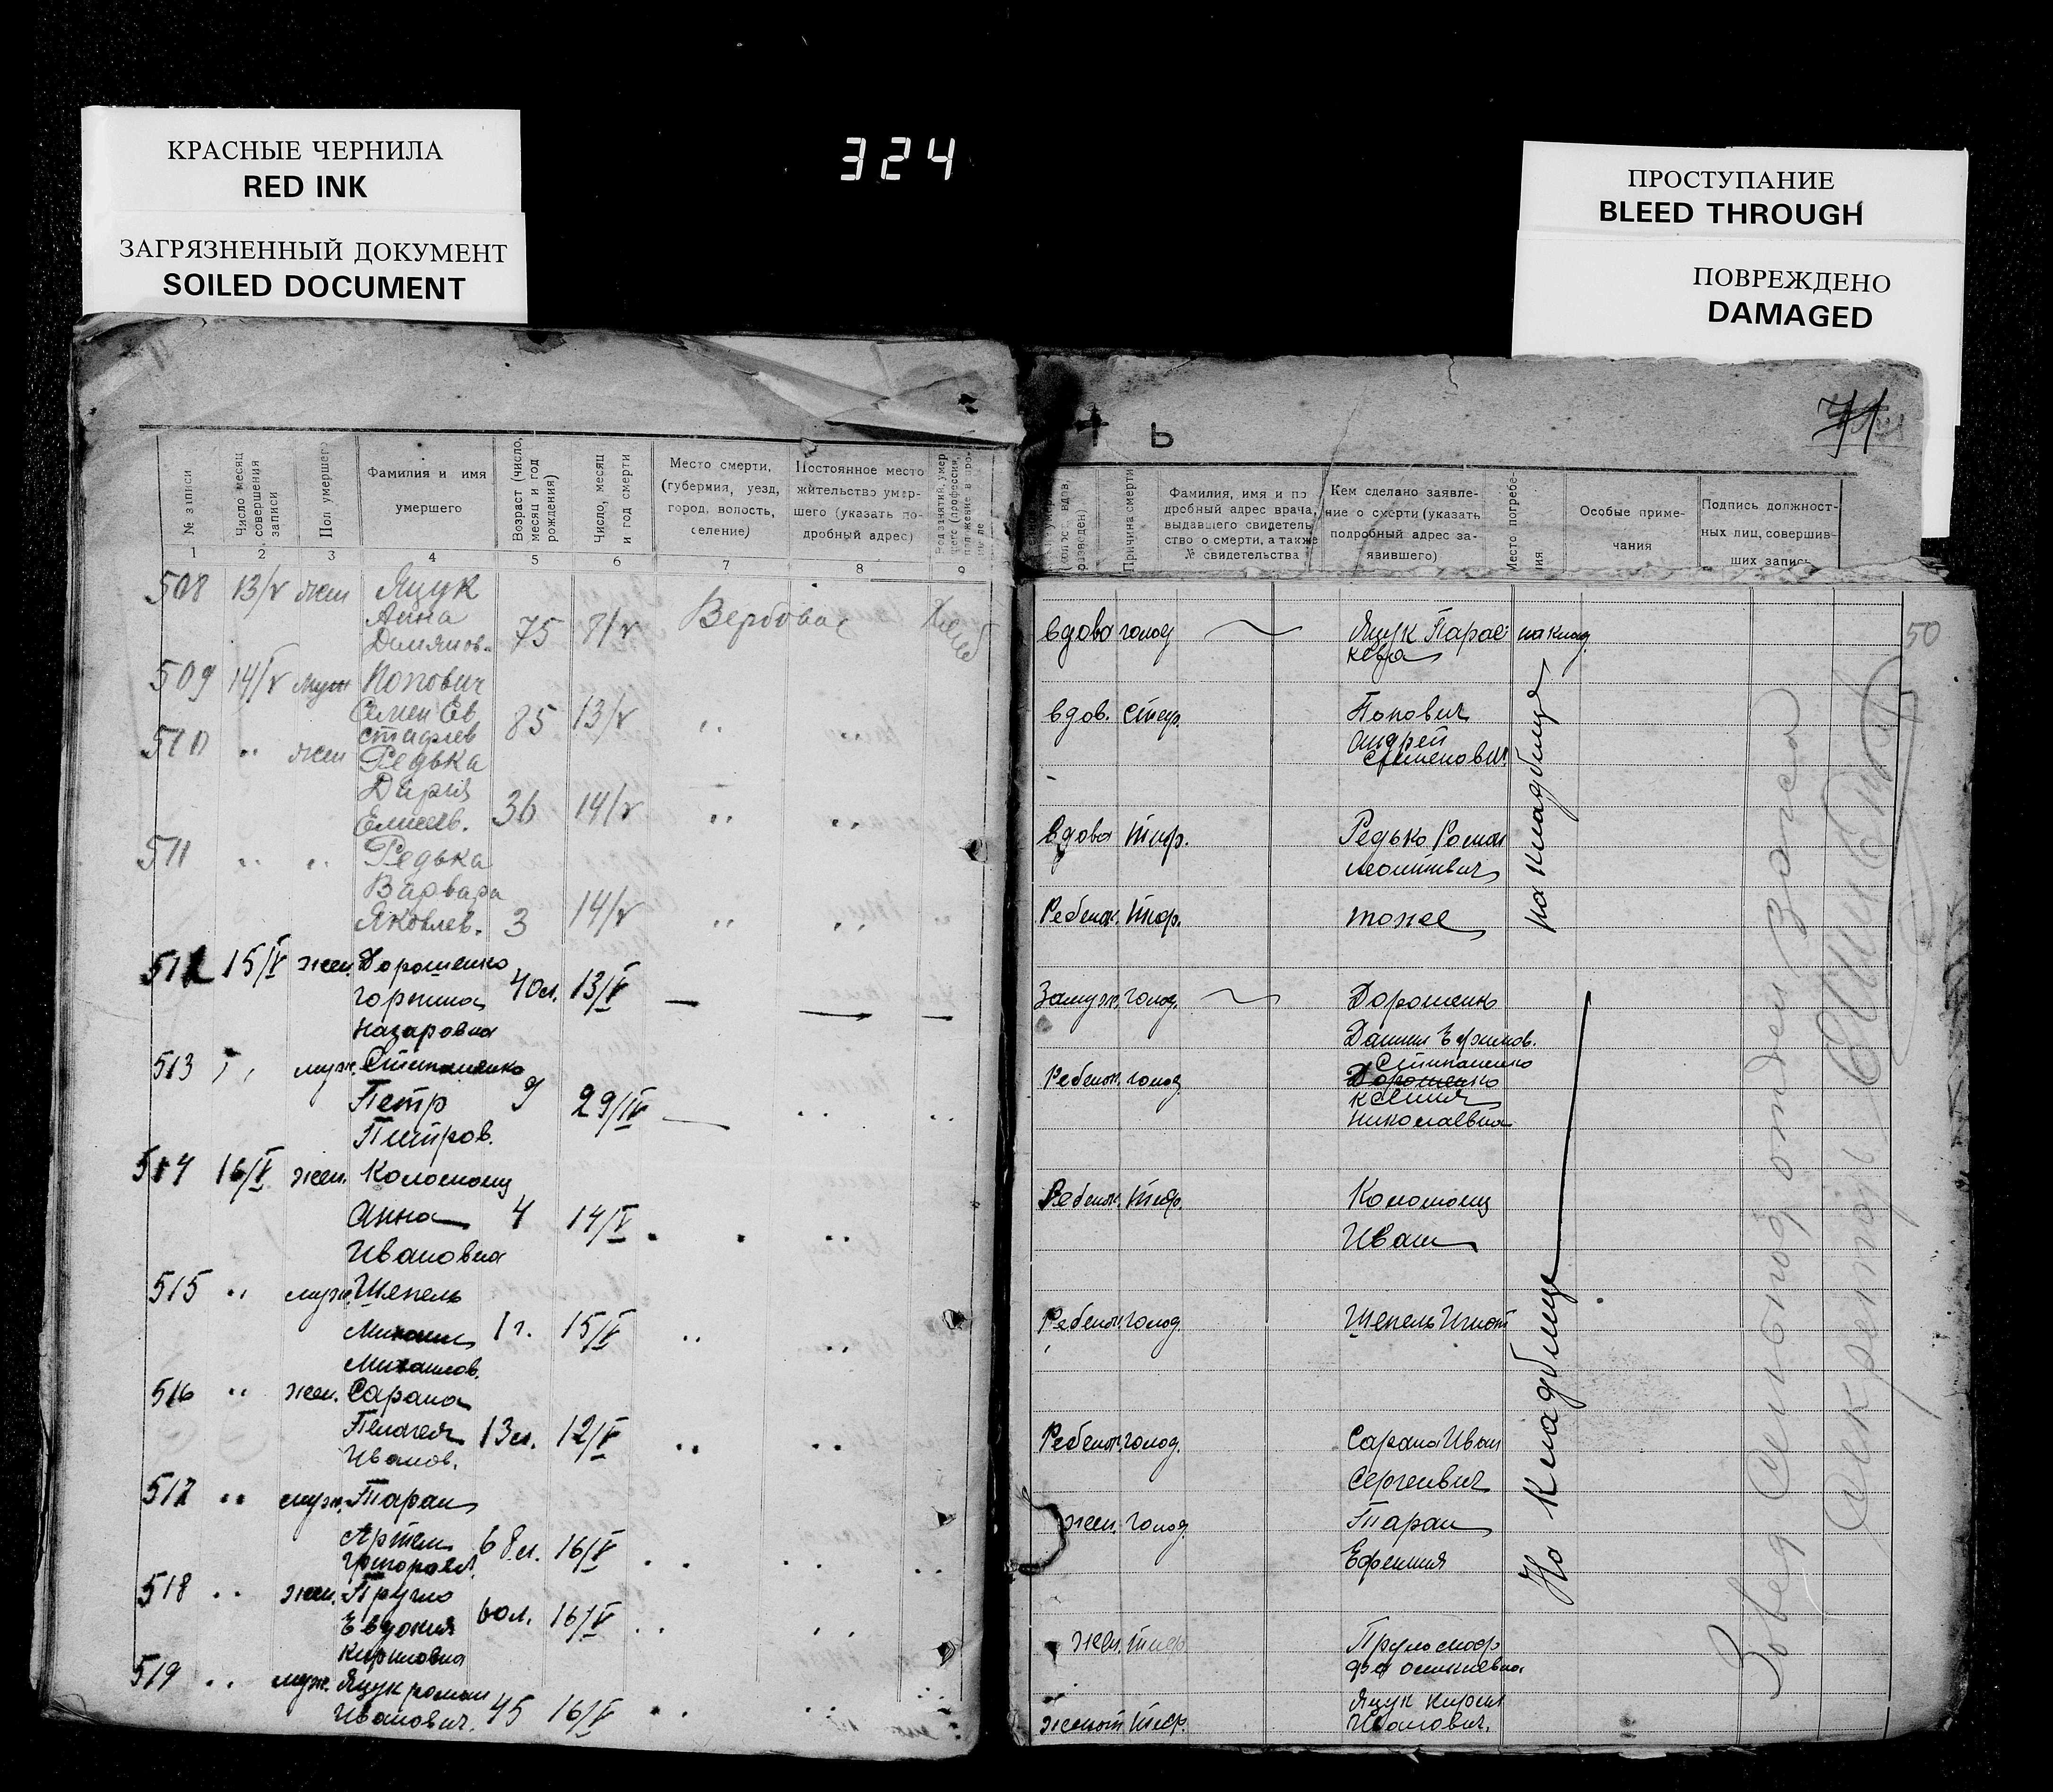 КРАСНЫЕ ЧЕРНИЛА
RED INK
ЗАГРЯЗНЕННЫЙ ДОКУМЕНТ
SOILED DOCUMENT
324
ПРОСТУПАНИЕ
BLEED THROUGH
ПОВРЕЖДЕНО
DAMAGED
№ записи
Число месяц совершения записи
Пол умершего
Фамилия и имя
умершего
Возраст (число, месяц и год рождения)
Число, месяц и год смерти
Место смерти,
(губерния, уезд,
город, волость,
селение)
Постоянное место
жительство умер-
шего (указать по-
дробный адрес)
1 2 3 4 5 6 7 8 9
508 13/V жен Яцук
Анна
Демянов. 75 8/V Вербовая Хлеб
509 14/V муж Попович
Семен Ев
стафиев 85 13/V „ „
510 „ жен Редька
Дария
Елисев. 36 14/V „ „
511 „ „ Редька
Варвара
Яковлев. 3 14/V „ „
512 15/V жен. Дорошенко
Горпина 40л. 13/V — — —
Назаровна
513 „ муж. Степаненко
Петр 9 29/IV — „ „
Петров.
514 16/V жен. Коломоец
Анна 4 14/V „ „ „
Ивановна
515 „ муж. Шепель
Михаил 1 г. 15/V „ „
Михайлов.
516 „ жен. Сарана
Пелагея 13л. 12/V „ „
Иванов.
517 „ муж. Таран
Артем 68л. 16/V „ „ „
Григорьев.
518 „ жен. Пругло
Евдокия 60л. 16/V „ „
Кириловна
519 „ муж. Яцук роман
Иванович. 45 16/V „ „
Ь
71
Причина смерти
Фамилия, имя и по
дробный адрес врача,
выдавшего свидетель
ство о смерти, а также
№ свидетельства
Кем сделано заявле-
ние о смерти (указать
подробный адрес за-
явившего)
Место погребе-
ния
Особые приме-
чания
Подпись должност-
ных лиц, совершив-
ших запись
50
вдова голод Яцук Парас на клад.
кева
вдов. стар. Попович
Андрей
Семенович
вдова тиф. Редько Роман
Леонтевич
Ребенок. тиф. тоже
на кладбище
Замуж. голод. Дорошенко
Данил Ефимов.
Ребенок. голод. Степаненко
Дорошенко
Ксения
Николаевна
Ребенок. тиф. Коломоец
Иван
Ребенок голод. Шепель Игнат
Ребенок. голод. Сарана Иван
Сергеевич
жен. голод. Таран
Ефения
На кладбище
жен. тиф
женат тиф. Яцук Кирил
Иванович.
Завед Сельбюд отдел Загса
Секретарь